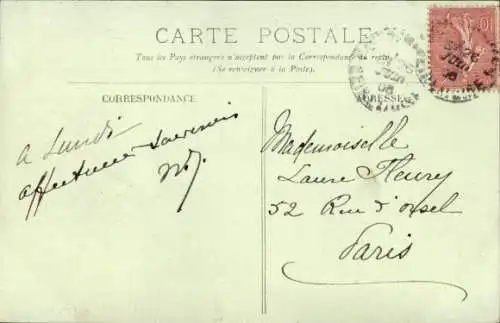 CARTE POSTALE
Tous les Pays étrangers n'acceptent pas la Correspondance au recto
(Se renseigner à la Poste).
CORRESPONDANCE
ADRESSE
à Lundi
affectueux souvenirs
Mademoiselle
Laure Fleury
52 Rue d'orsel
Paris